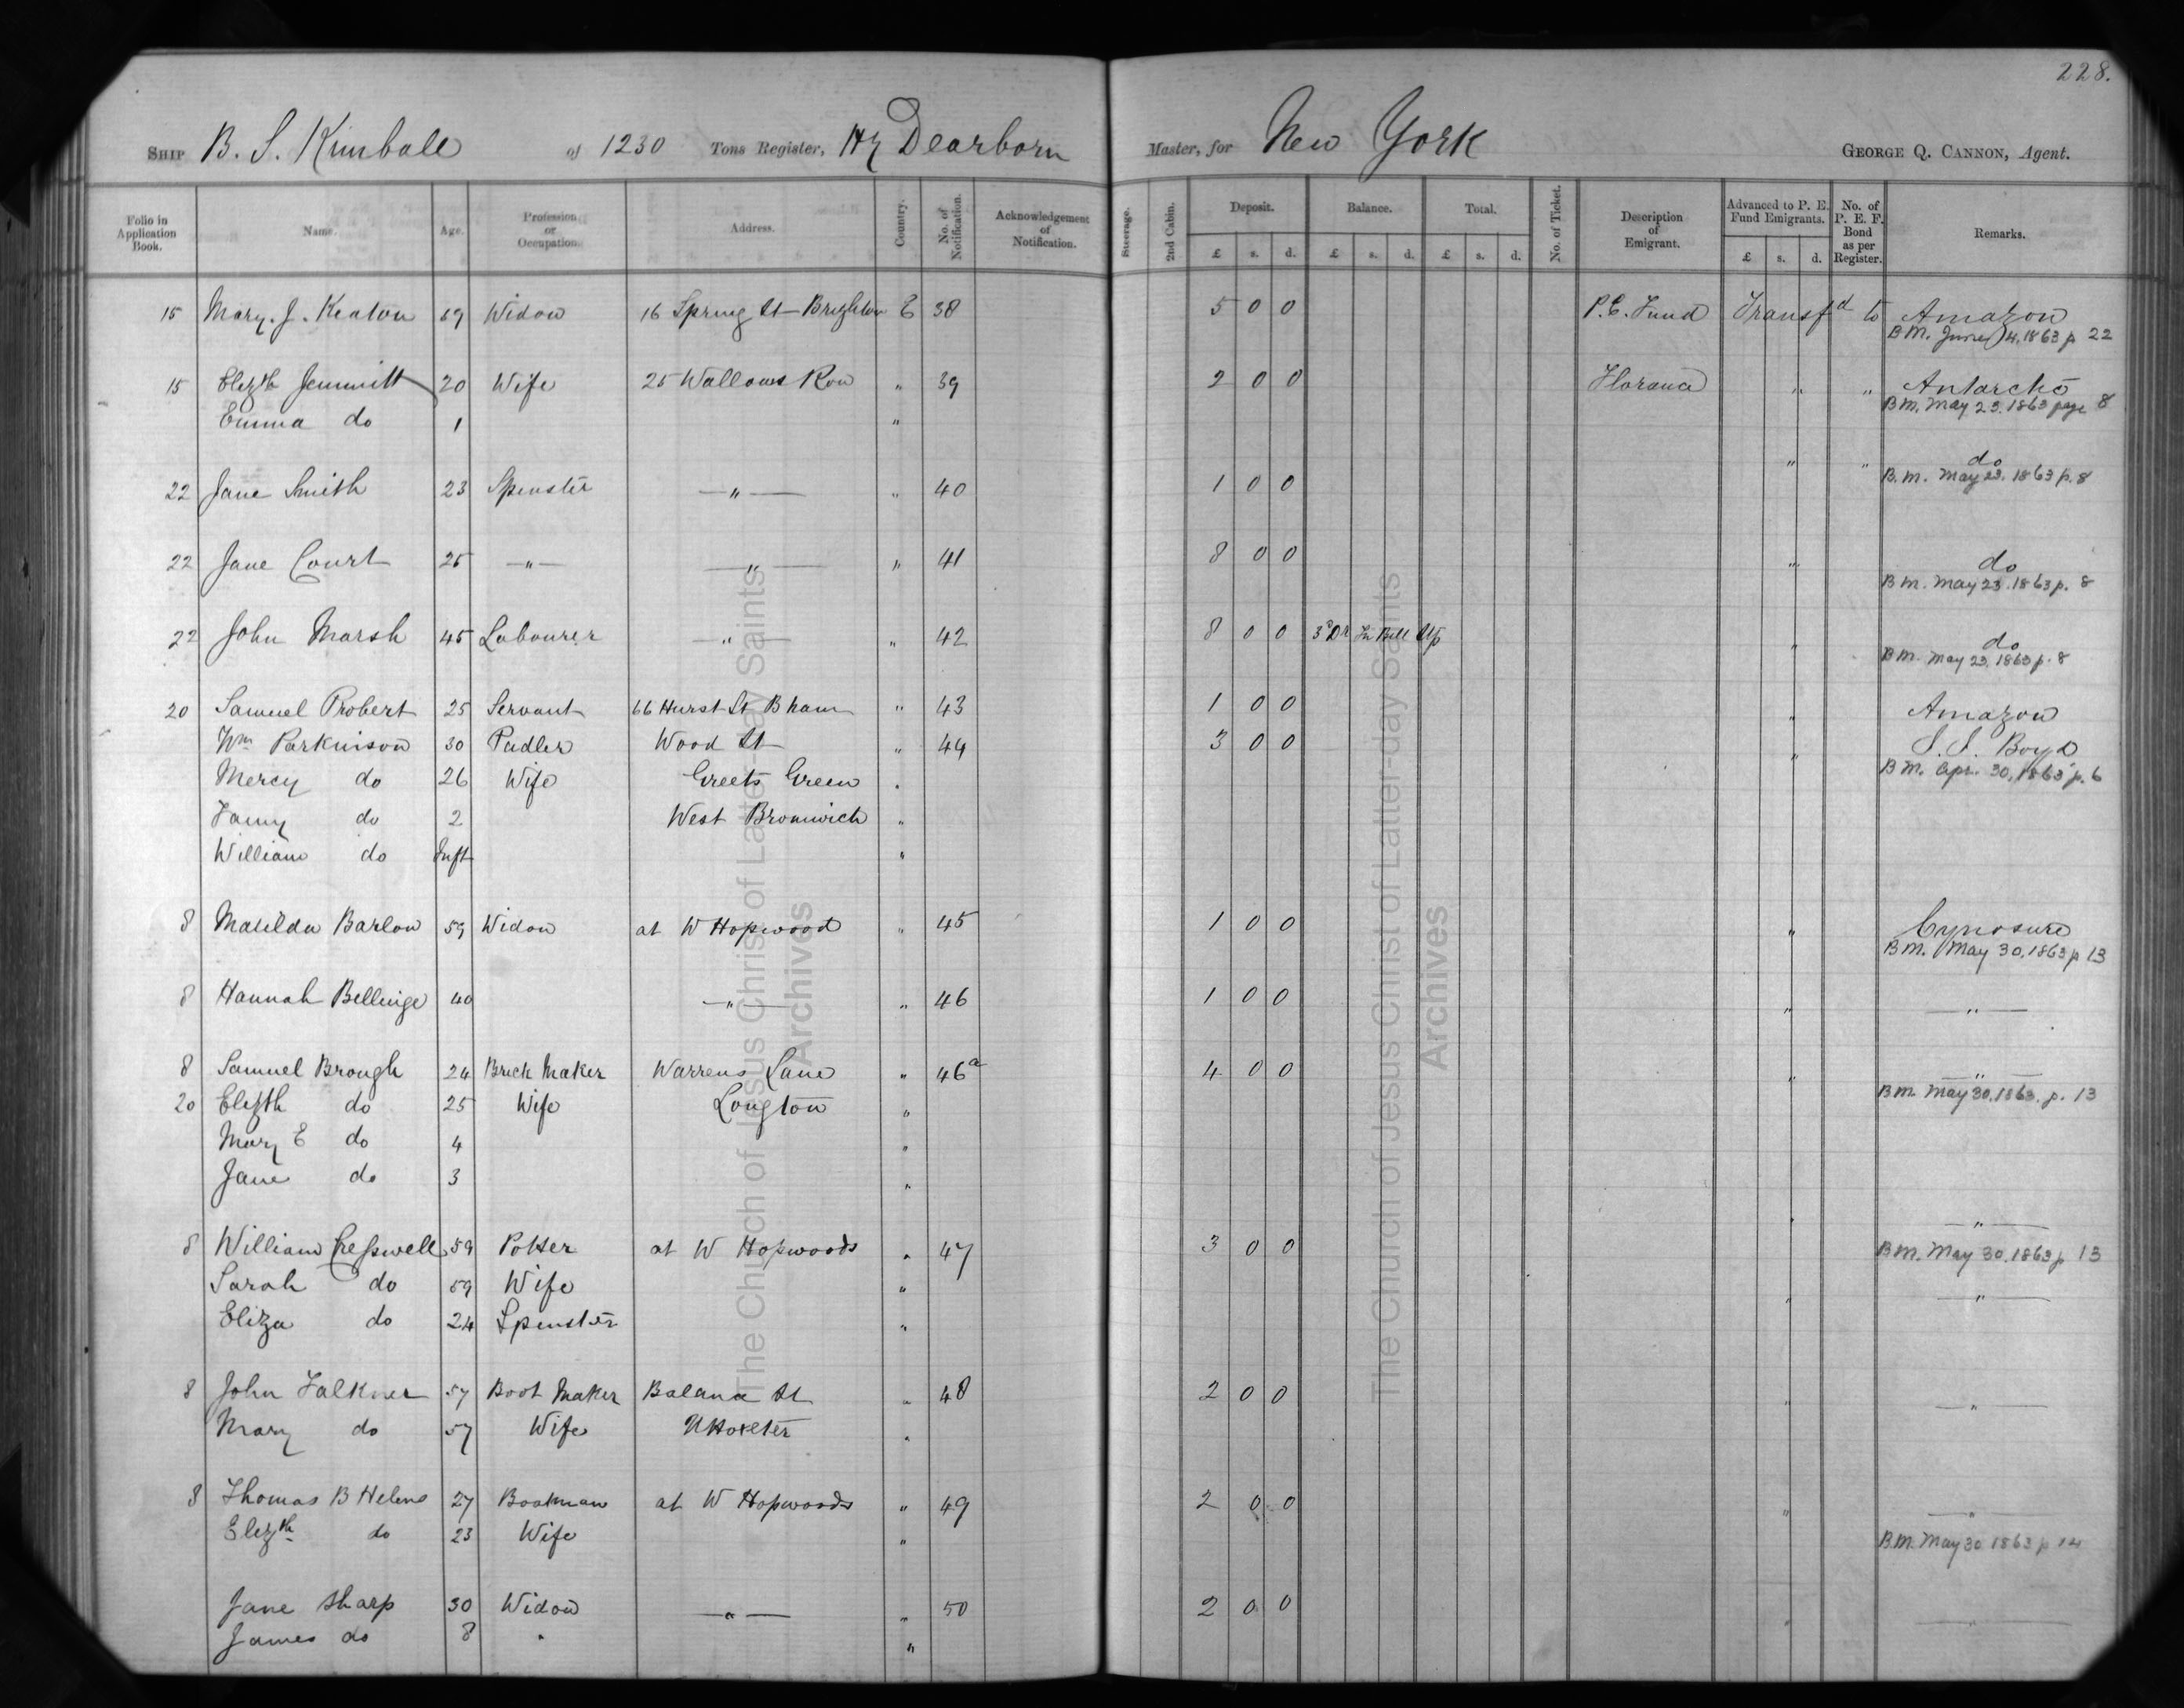 228.
SHIP B. S. Kimball of 1230 Tons Register, Hy Dearborn Master, for New York GEORGE Q. CANNON, Agent.
Folio in Application Book. Name. Age. Profession or Occupation. Address. Country. No. of Notification. Acknowledgement of Notification. Steerage. 2nd Cabin. Deposit. Balance. Total. No. of Ticket. Description of Emigrant. Advanced to P. E. Fund Emigrants. No. of P. E. F. Bond as per Register. Remarks.
£ s. d. £ s. d. £ s. d. £ s. d.
15 Mary. J. Keaton 69 Widow 16 Spring St Brighton E 38 5 0 0 P. E. Fund Transfd to Amazon
B M. June 4, 1863 p 22
15 Elizth Jemmitt 20 Wife 25 Wallows Row " 39 2 0 0 " " Antarctic
B M. May 23. 1863 page 8
Emma do 1 "
" " do
22 Jane Smith 23 Spinster " " 40 1 0 0 B. M. May 23. 1863 p. 8
22 Jane Court 25 " " " 41 8 0 0 " do
B M. May 23. 1863 p. 8
22 John Marsh 45 Labourer " " 42 8 0 0 " do
B M. May 23. 1863 p. 8
20 Samuel Probert 25 Servant 66 Hurst St B ham " 43 1 0 0 " Amazon
Wm Parkinson 30 Pudler Wood St " 44 3 0 0 " S. S. Boyd
Mercy do 26 Wife Greets Green " B M. Apr. 30, 1863 p. 6
Fanny do 2 West Bromwich "
William do Inft "
8 Matilda Barlow 59 Widow at W Hopwood " 45 1 0 0 " Cynosure
B M. May 30, 1863 p 13
8 Hannah Bellinge 40 " " 46 1 0 0 " "
8 Samuel Brough 24 Brick Maker Warrens Lane " 46a 4 0 0 " "
20 Elizth do 25 Wife Longton " B M. May 30, 1863. p. 13
Mary E do 4 "
Jane do 3 "
8 William Cresswell 59 Potter at W Hopwoods " 47 3 0 0 " "
B M. May 30, 1863 p 13
Sarah do 59 Wife " " "
Eliza do 24 Spinster "
8 John Falkner 57 Boot Maker Balance St " 48 2 0 0 " "
Mary do 57 Wife Uttoxeter "
8 Thomas B Helens 27 Boatman at W Hopwoods " 49 2 0 0 " "
Elizth do 23 Wife " B. M. May 30 1863 p 14
Jane Sharp 30 Widow " " 50 2 0 0 "
James do 8 " "
The Church of Jesus Christ of Latter-day Saints
Archives
The Church of Jesus Christ of Latter-day Saints
Archives